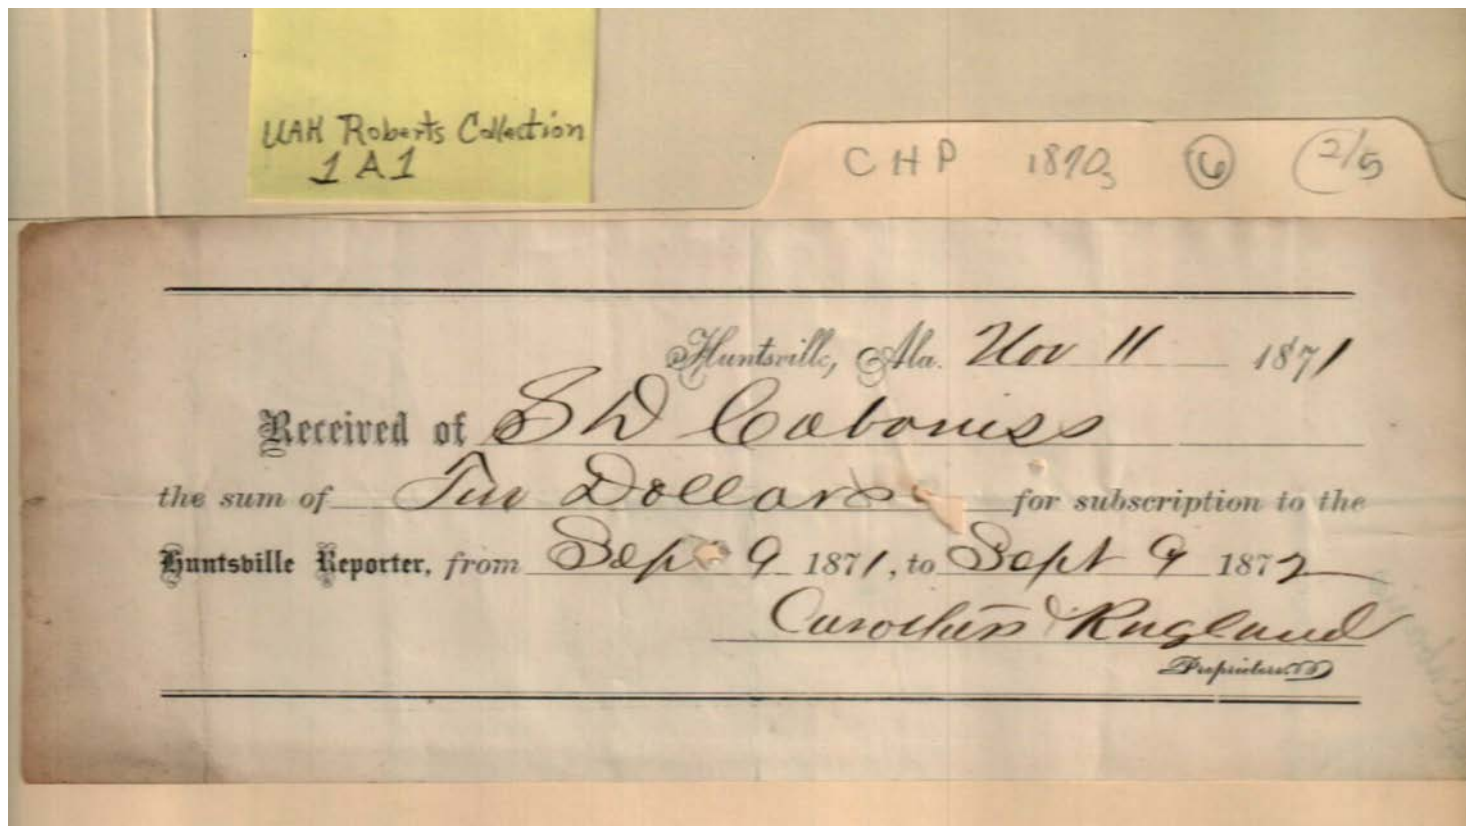 UAH Roberts Collection
1A1
CHP 1870s 6 (2/5
Huntsville, Ala. Nov 11 1871
Received of S D Cabaniss
the sum of Two Dollars for subscription to the
Huntsville Reporter, from Sept 9 1871, to Sept 9 1872
Carothers & Ragland
Proprietors.